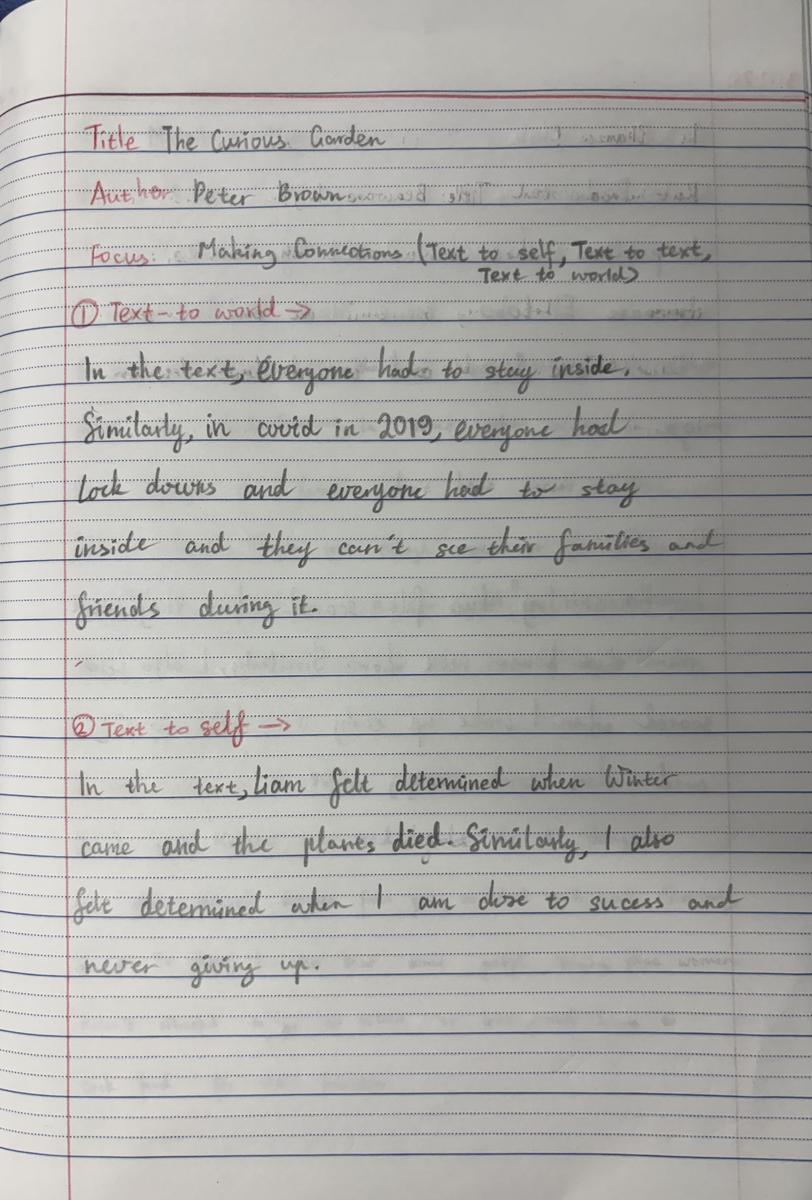 Title The Curious Garden
Author Peter Brown
Focus: Making Connections (Text to self, Text to text,
Text to world)
① Text-to world →
In the text, everyone had to stay inside.
Similarly, in covid in 2019, everyone had
lock downs and everyone had to stay
inside and they can't see their families and
friends during it.
② Text to self →
In the text, Liam felt determined when Winter
came and the plants died. Similarly, I also
felt determined when I am close to sucess and
never giving up.